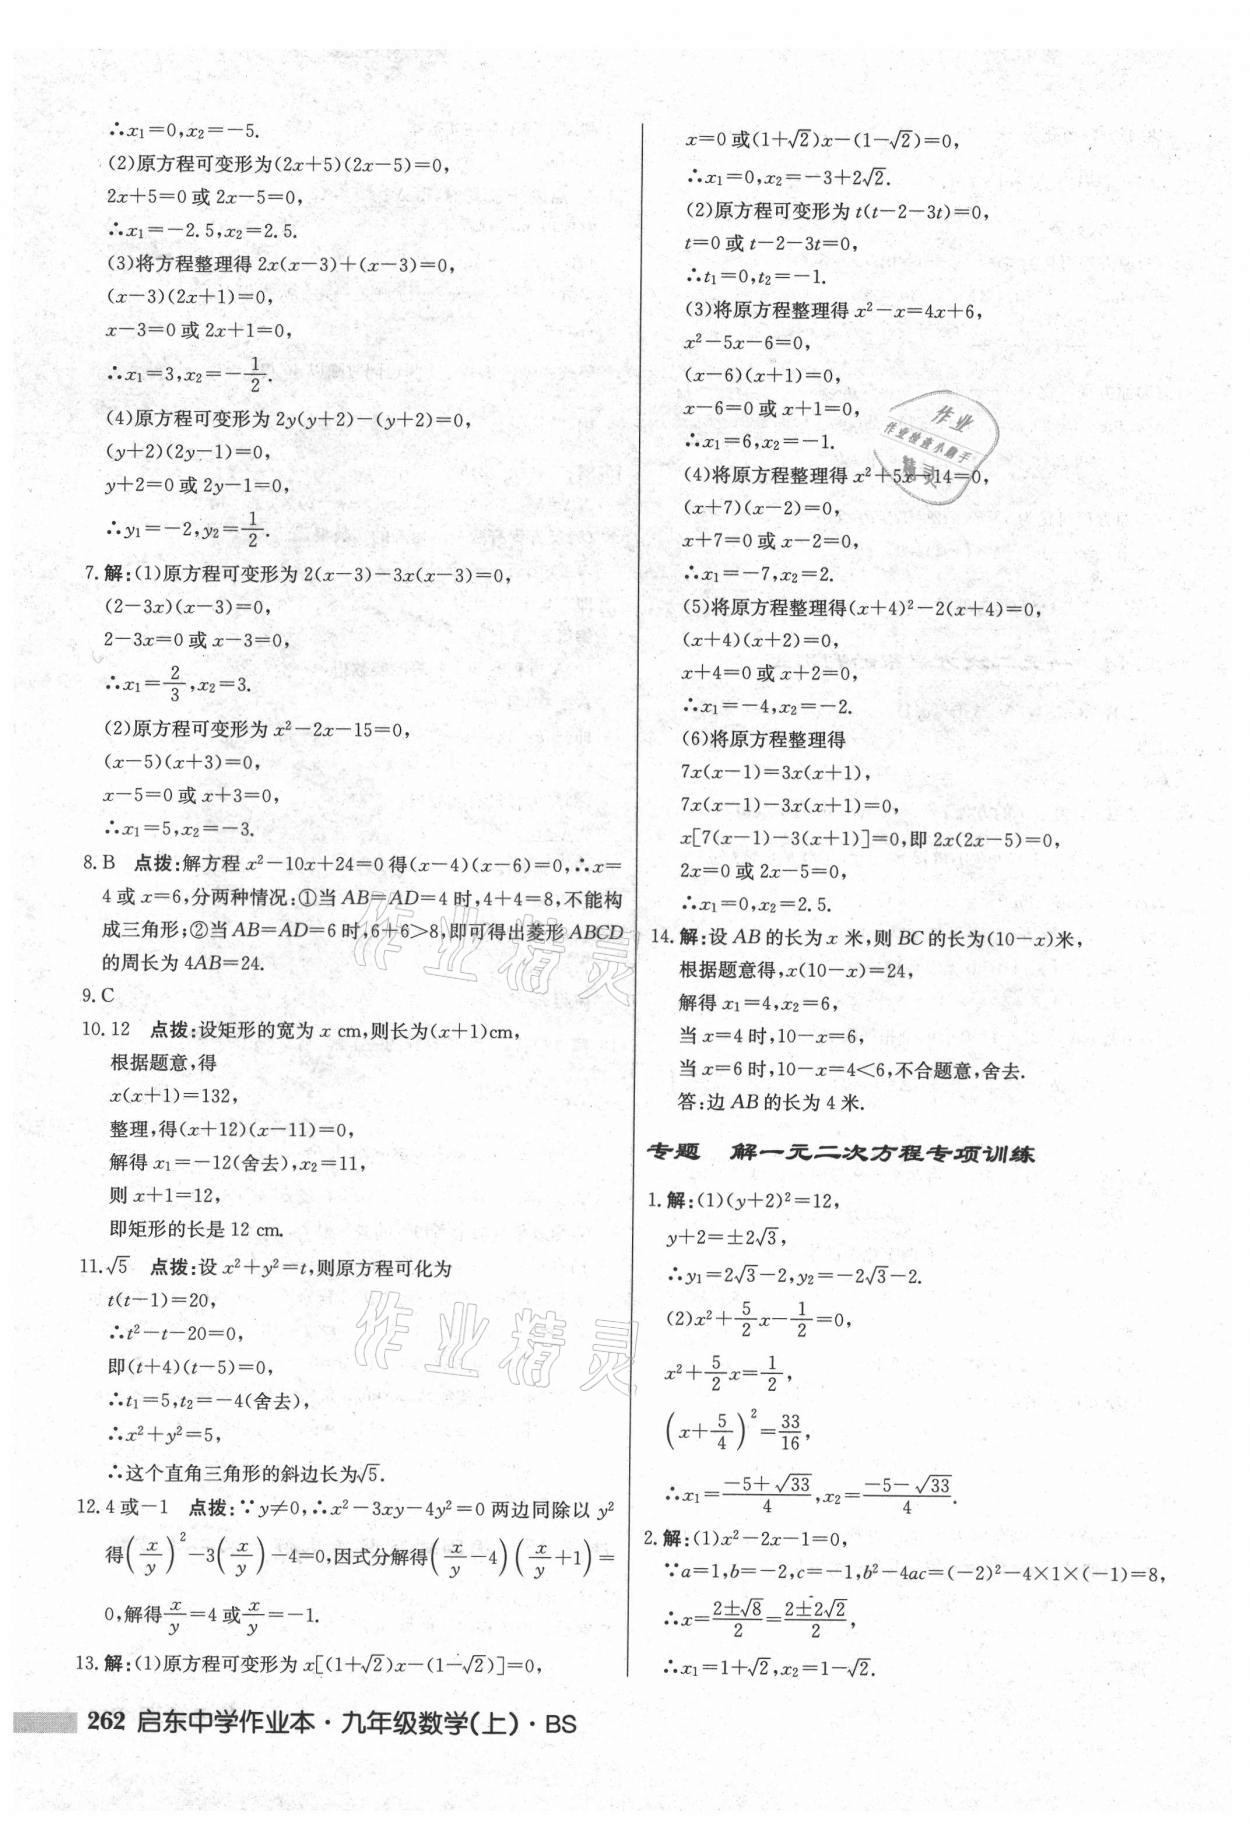 ∴x₁=0,x₂=-5.
(2)原方程可变形为(2x+5)(2x-5)=0,
2x+5=0或2x-5=0,
∴x₁=-2.5,x₂=2.5.
(3)将方程整理得2x(x-3)+(x-3)=0,
(x-3)(2x+1)=0,
x-3=0或2x+1=0,
∴x₁=3,x₂=-1/2.
(4)原方程可变形为2y(y+2)-(y+2)=0,
(y+2)(2y-1)=0,
y+2=0或2y-1=0,
∴y₁=-2,y₂=1/2.
7.解:(1)原方程可变形为2(x-3)-3x(x-3)=0,
(2-3x)(x-3)=0,
2-3x=0或x-3=0,
∴x₁=2/3,x₂=3.
(2)原方程可变形为x²-2x-15=0,
(x-5)(x+3)=0,
x-5=0或x+3=0,
∴x₁=5,x₂=-3.
8.B 点拨:解方程x²-10x+24=0得(x-4)(x-6)=0,∴x=
4或x=6,分两种情况:①当AB=AD=4时,4+4=8,不能构
成三角形;②当AB=AD=6时,6+6>8,即可得出菱形ABCD
的周长为4AB=24.
9.C
10.12 点拨:设矩形的宽为x cm,则长为(x+1)cm,
根据题意,得
x(x+1)=132,
整理,得(x+12)(x-11)=0,
解得x₁=-12(舍去),x₂=11,
则x+1=12,
即矩形的长是12 cm.
11.√5 点拨:设x²+y²=t,则原方程可化为
t(t-1)=20,
∴t²-t-20=0,
即(t+4)(t-5)=0,
∴t₁=5,t₂=-4(舍去),
∴x²+y²=5,
∴这个直角三角形的斜边长为√5.
12.4或-1 点拨:∵y≠0,∴x²-3xy-4y²=0两边同除以y²
得(x/y)²-3(x/y)-4=0,因式分解得(x/y-4)(x/y+1)=
0,解得x/y=4或x/y=-1.
13.解:(1)原方程可变形为x[(1+√2)x-(1-√2)]=0,
x=0或(1+√2)x-(1-√2)=0,
∴x₁=0,x₂=-3+2√2.
(2)原方程可变形为t(t-2-3t)=0,
t=0或t-2-3t=0,
∴t₁=0,t₂=-1.
(3)将原方程整理得x²-x=4x+6,
x²-5x-6=0,
(x-6)(x+1)=0,
x-6=0或x+1=0,
∴x₁=6,x₂=-1.
(4)将原方程整理得x²+5x-14=0,
(x+7)(x-2)=0,
x+7=0或x-2=0,
∴x₁=-7,x₂=2.
(5)将原方程整理得(x+4)²-2(x+4)=0,
(x+4)(x+2)=0,
x+4=0或x+2=0,
∴x₁=-4,x₂=-2.
(6)将原方程整理得
7x(x-1)=3x(x+1),
7x(x-1)-3x(x+1)=0,
x[7(x-1)-3(x+1)]=0,即2x(2x-5)=0,
2x=0或2x-5=0,
∴x₁=0,x₂=2.5.
14.解:设AB的长为x米,则BC的长为(10-x)米,
根据题意得,x(10-x)=24,
解得x₁=4,x₂=6,
当x=4时,10-x=6,
当x=6时,10-x=4<6,不合题意,舍去.
答:边AB的长为4米.
专题 解一元二次方程专项训练
1.解:(1)(y+2)²=12,
y+2=±2√3,
∴y₁=2√3-2,y₂=-2√3-2.
(2)x²+5/2x-1/2=0,
x²+5/2x=1/2,
(x+5/4)²=33/16,
∴x₁=(-5+√33)/4,x₂=(-5-√33)/4.
2.解:(1)x²-2x-1=0,
∵a=1,b=-2,c=-1,b²-4ac=(-2)²-4×1×(-1)=8,
∴x=(2±√8)/2=(2±2√2)/2,
∴x₁=1+√2,x₂=1-√2.
作业
作业检查小助手
精灵
作业精灵
作业精灵
262 启东中学作业本·九年级数学(上)·BS